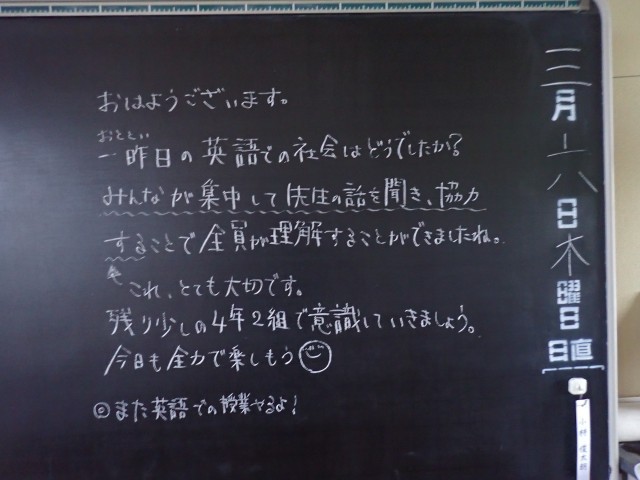 おはようございます。
おととい
一昨日の英語での社会はどうでしたか?
みんなが集中して先生の話を聞き、協力
することで全員が理解することができましたね。
これ、とても大切です。
残り少しの4年2組で意識していきましょう。
今日も全力で楽しもう
◎また英語での授業やるよ!
三月十八日木曜日
日直